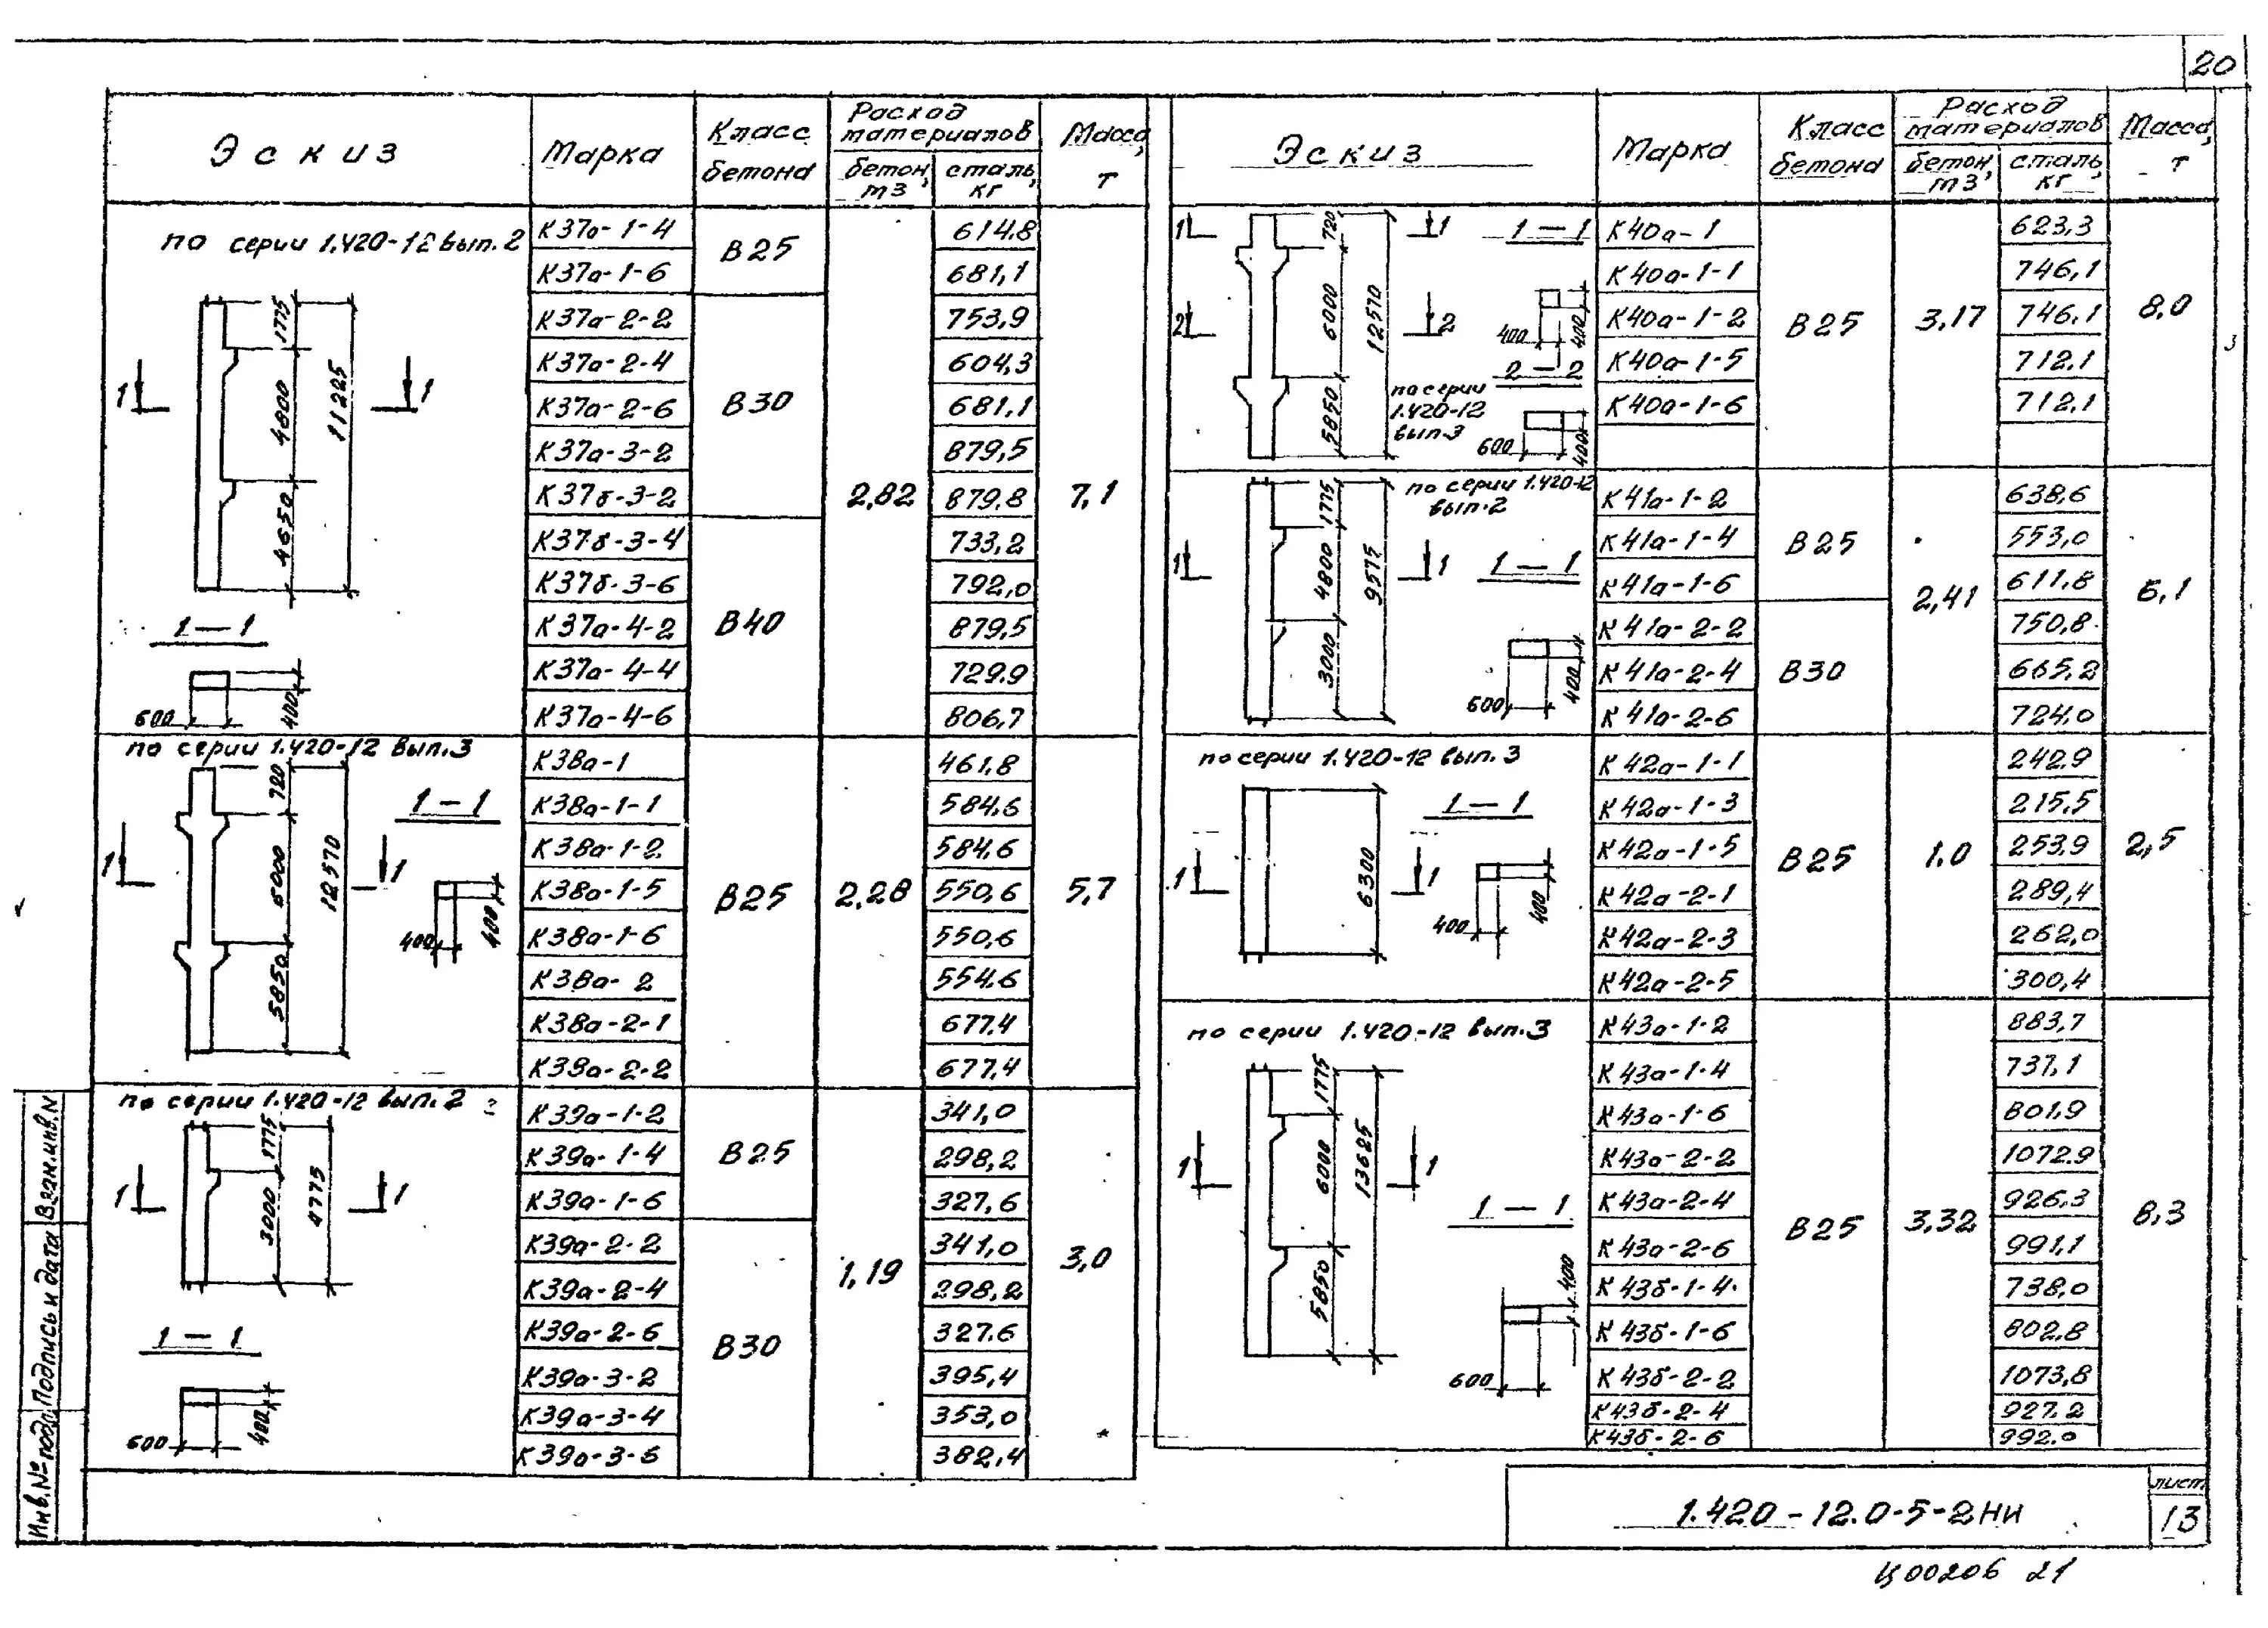 20
Эскиз
Марка
Класс бетона
Расход материалов
бетон, м3
сталь, кг
Масса, т
по серии 1.420-12 вып. 2
1775
4800
4650
11225
1 1
1-1
600
400
К37а-1-4 В25 614,8
К37а-1-6 681,1
К37а-2-2 В30 753,9
К37а-2-4 604,3
К37а-2-6 681,1
К37а-3-2 879,5
К37б-3-2 2,82 879,8 7,1
К37б-3-4 В40 733,2
К37б-3-6 792,0
К37а-4-2 879,5
К37а-4-4 729.9
К37а-4-6 806,7
по серии 1.420-12 вып.3
720
6000
5850
12570
1 1
1-1
400
400
К38а-1 461,8
К38а-1-1 584,6
К38а-1-2 584,6
К38а-1-5 В25 2,28 550,6 5,7
К38а-1-6 550,6
К38а-2 554,6
К38а-2-1 677,4
К38а-2-2 677,4
по серии 1.420-12 вып. 2
1775
3000
4775
1 1
1-1
600
400
К39а-1-2 341,0
К39а-1-4 В25 298,2
К39а-1-6 327,6
К39а-2-2 1,19 341,0 3,0
К39а-2-4 298,2
К39а-2-6 В30 327.6
К39а-3-2 395,4
К39а-3-4 353,0
К39а-3-6 382,4
Эскиз
Марка
Класс бетона
Расход материалов
бетон, м3
сталь, кг
Масса, т
1 1
2 2
720
6000
5850
12570
1-1
400
400
2-2
по серии
1.420-12
вып.3
600
400
К40а-1 623,3
К40а-1-1 746,1
К40а-1-2 В25 3,17 746,1 8,0
К40а-1-5 712,1
К40а-1-6 712,1
по серии 1.420-12
вып.2
1775
4800
3000
9575
1 1
1-1
600
400
К41а-1-2 638,6
К41а-1-4 В25 553,0
К41а-1-6 2,41 611,8 6,1
К41а-2-2 750,8
К41а-2-4 В30 665,2
К41а-2-6 724,0
по серии 1.420-12 вып. 3
6300
1 1
1-1
400
400
К42а-1-1 242.9
К42а-1-3 215,5
К42а-1-5 В25 1.0 253,9 2,5
К42а-2-1 289,4
К42а-2-3 262,0
К42а-2-5 300,4
по серии 1.420-12 вып.3
1775
6000
5850
13625
1 1
1-1
600
400
К43а-1-2 883,7
К43а-1-4 737,1
К43а-1-6 801,9
К43а-2-2 1072.9
К43а-2-4 В25 3,32 926,3 8,3
К43а-2-6 991,1
К43б-1-4 738,0
К43б-1-6 802,8
К43б-2-2 1073,8
К43б-2-4 927.2
К43б-2-6 992.0
Инв.№ подл. Подпись и дата Взам.инв.N
1.420-12.0-5-2НИ
лист
13
Ц00206 21